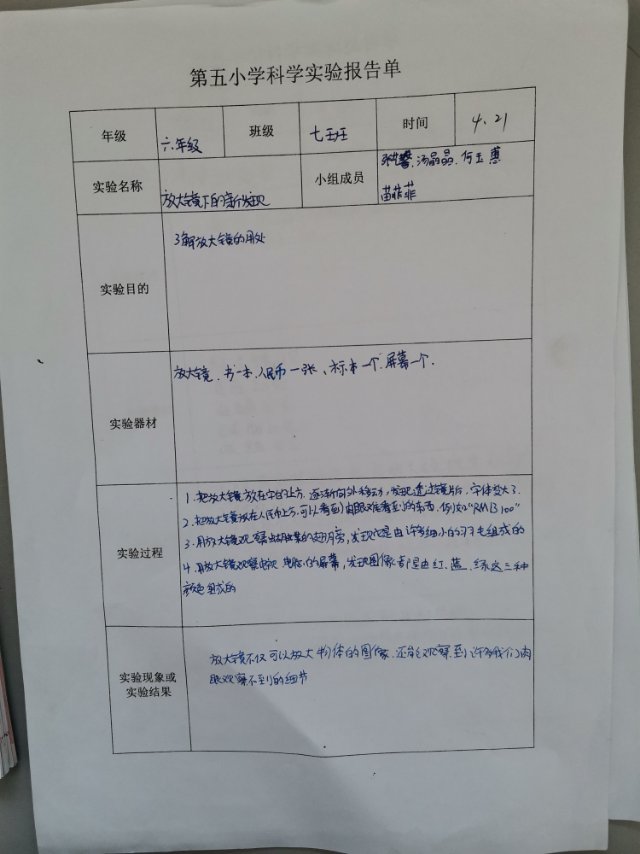 第五小学科学实验报告单
年级 六年级 班级 七班 时间 4、21
实验名称 放大镜下的新发现 小组成员 汤晶晶、何玉蕙
苗菲菲
实验目的 了解放大镜的用处
实验器材 放大镜、书一本、人民币一张、标本一个、屏幕一个.
实验过程
1. 把放大镜放在字的上方,逐渐向外移动,发现透过镜片后,字体变大了.
2. 把放大镜放在人民币上方,可以看到肉眼难看到的东西,例如“RMB100”
3. 用放大镜观察蝴蝶的翅膀,发现它是由许多细小的羽毛组成的
4. 用放大镜观察电视、电脑的屏幕,发现图像都是由红、蓝、绿这三种
颜色组成的
实验现象或
实验结果
放大镜不仅可以放大物体的图像,还能观察到许多我们肉
眼观察不到的细节